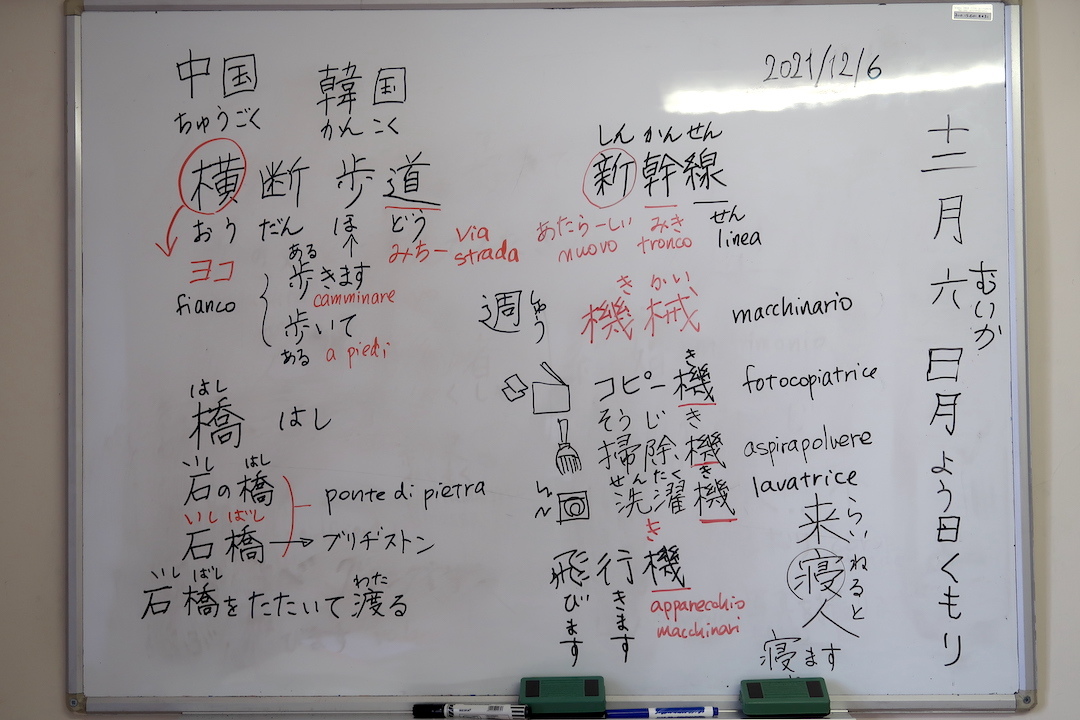 中国 韓国
ちゅうごく かんこく
横断歩道
おう だん ほ どう
ヨコ
fianco
みちー via strada
ある
歩きます
camminare
歩いて
ある a piedi
はし
橋 はし
いし はし
石の橋
いし ばし
石橋 → ブリヂストン
ponte di pietra
いし ばし わた
石橋をたたいて渡る
2021/12/6
しん かん せん
新幹線
あたらーしい みき せん
nuovo tronco linea
週 しゅう
き かい
機械 macchinario
き
コピー機 fotocopiatrice
そうじ き
掃除機 aspirapolvere
せんたく き
洗濯機 lavatrice
き
飛行機
びます きます
apparecchio
macchinari
来 らい
寝 ねると
人
寝ます
十二月六日月よう日くもり
むいか